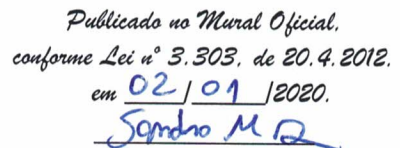 Publicado no Mural Oficial,
conforme Lei nº 3.303, de 20.4.2012.
em 02/01/2020.
Sandro M